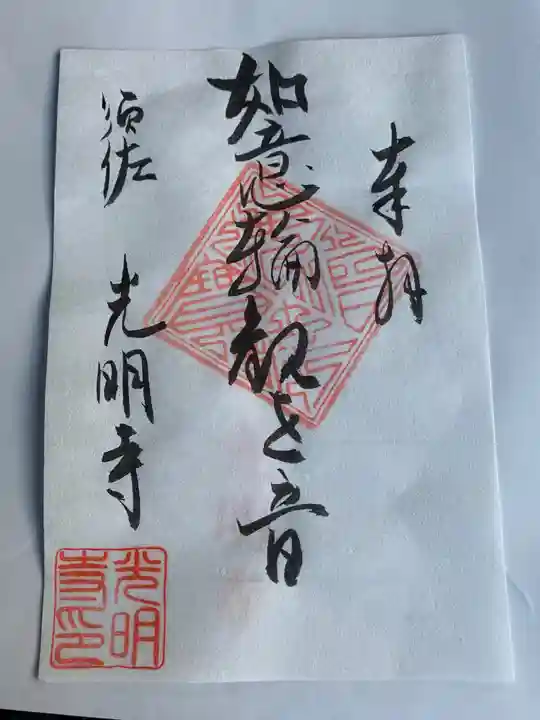 奉拝
如意輪観世音
須佐 光明寺
光明
寺印